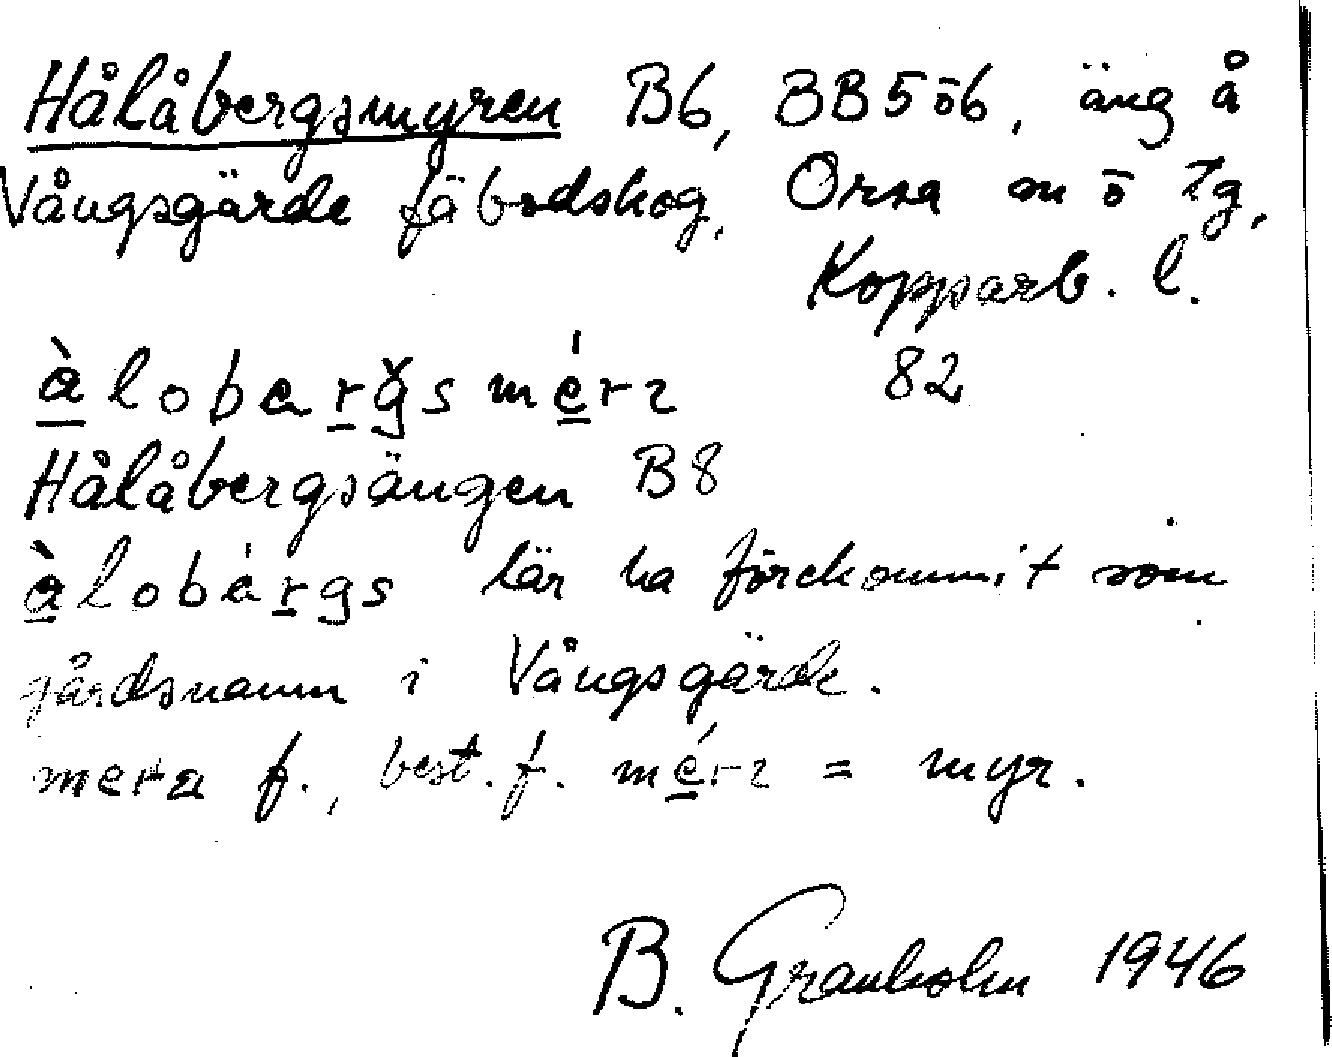 Hålåbergsmyren B6, BB5ö6, äng å
Vångsgärde fäbodskog, Orsa m ö tg,
Kopparb. l.
àlobergs mérz 82
Hålåbergsängen B8
àlobérgs lär ha förekommit som
gårdsnamn i Vångsgärde.
mera f., best. f. mérz = myr.
B. Granholm 1946